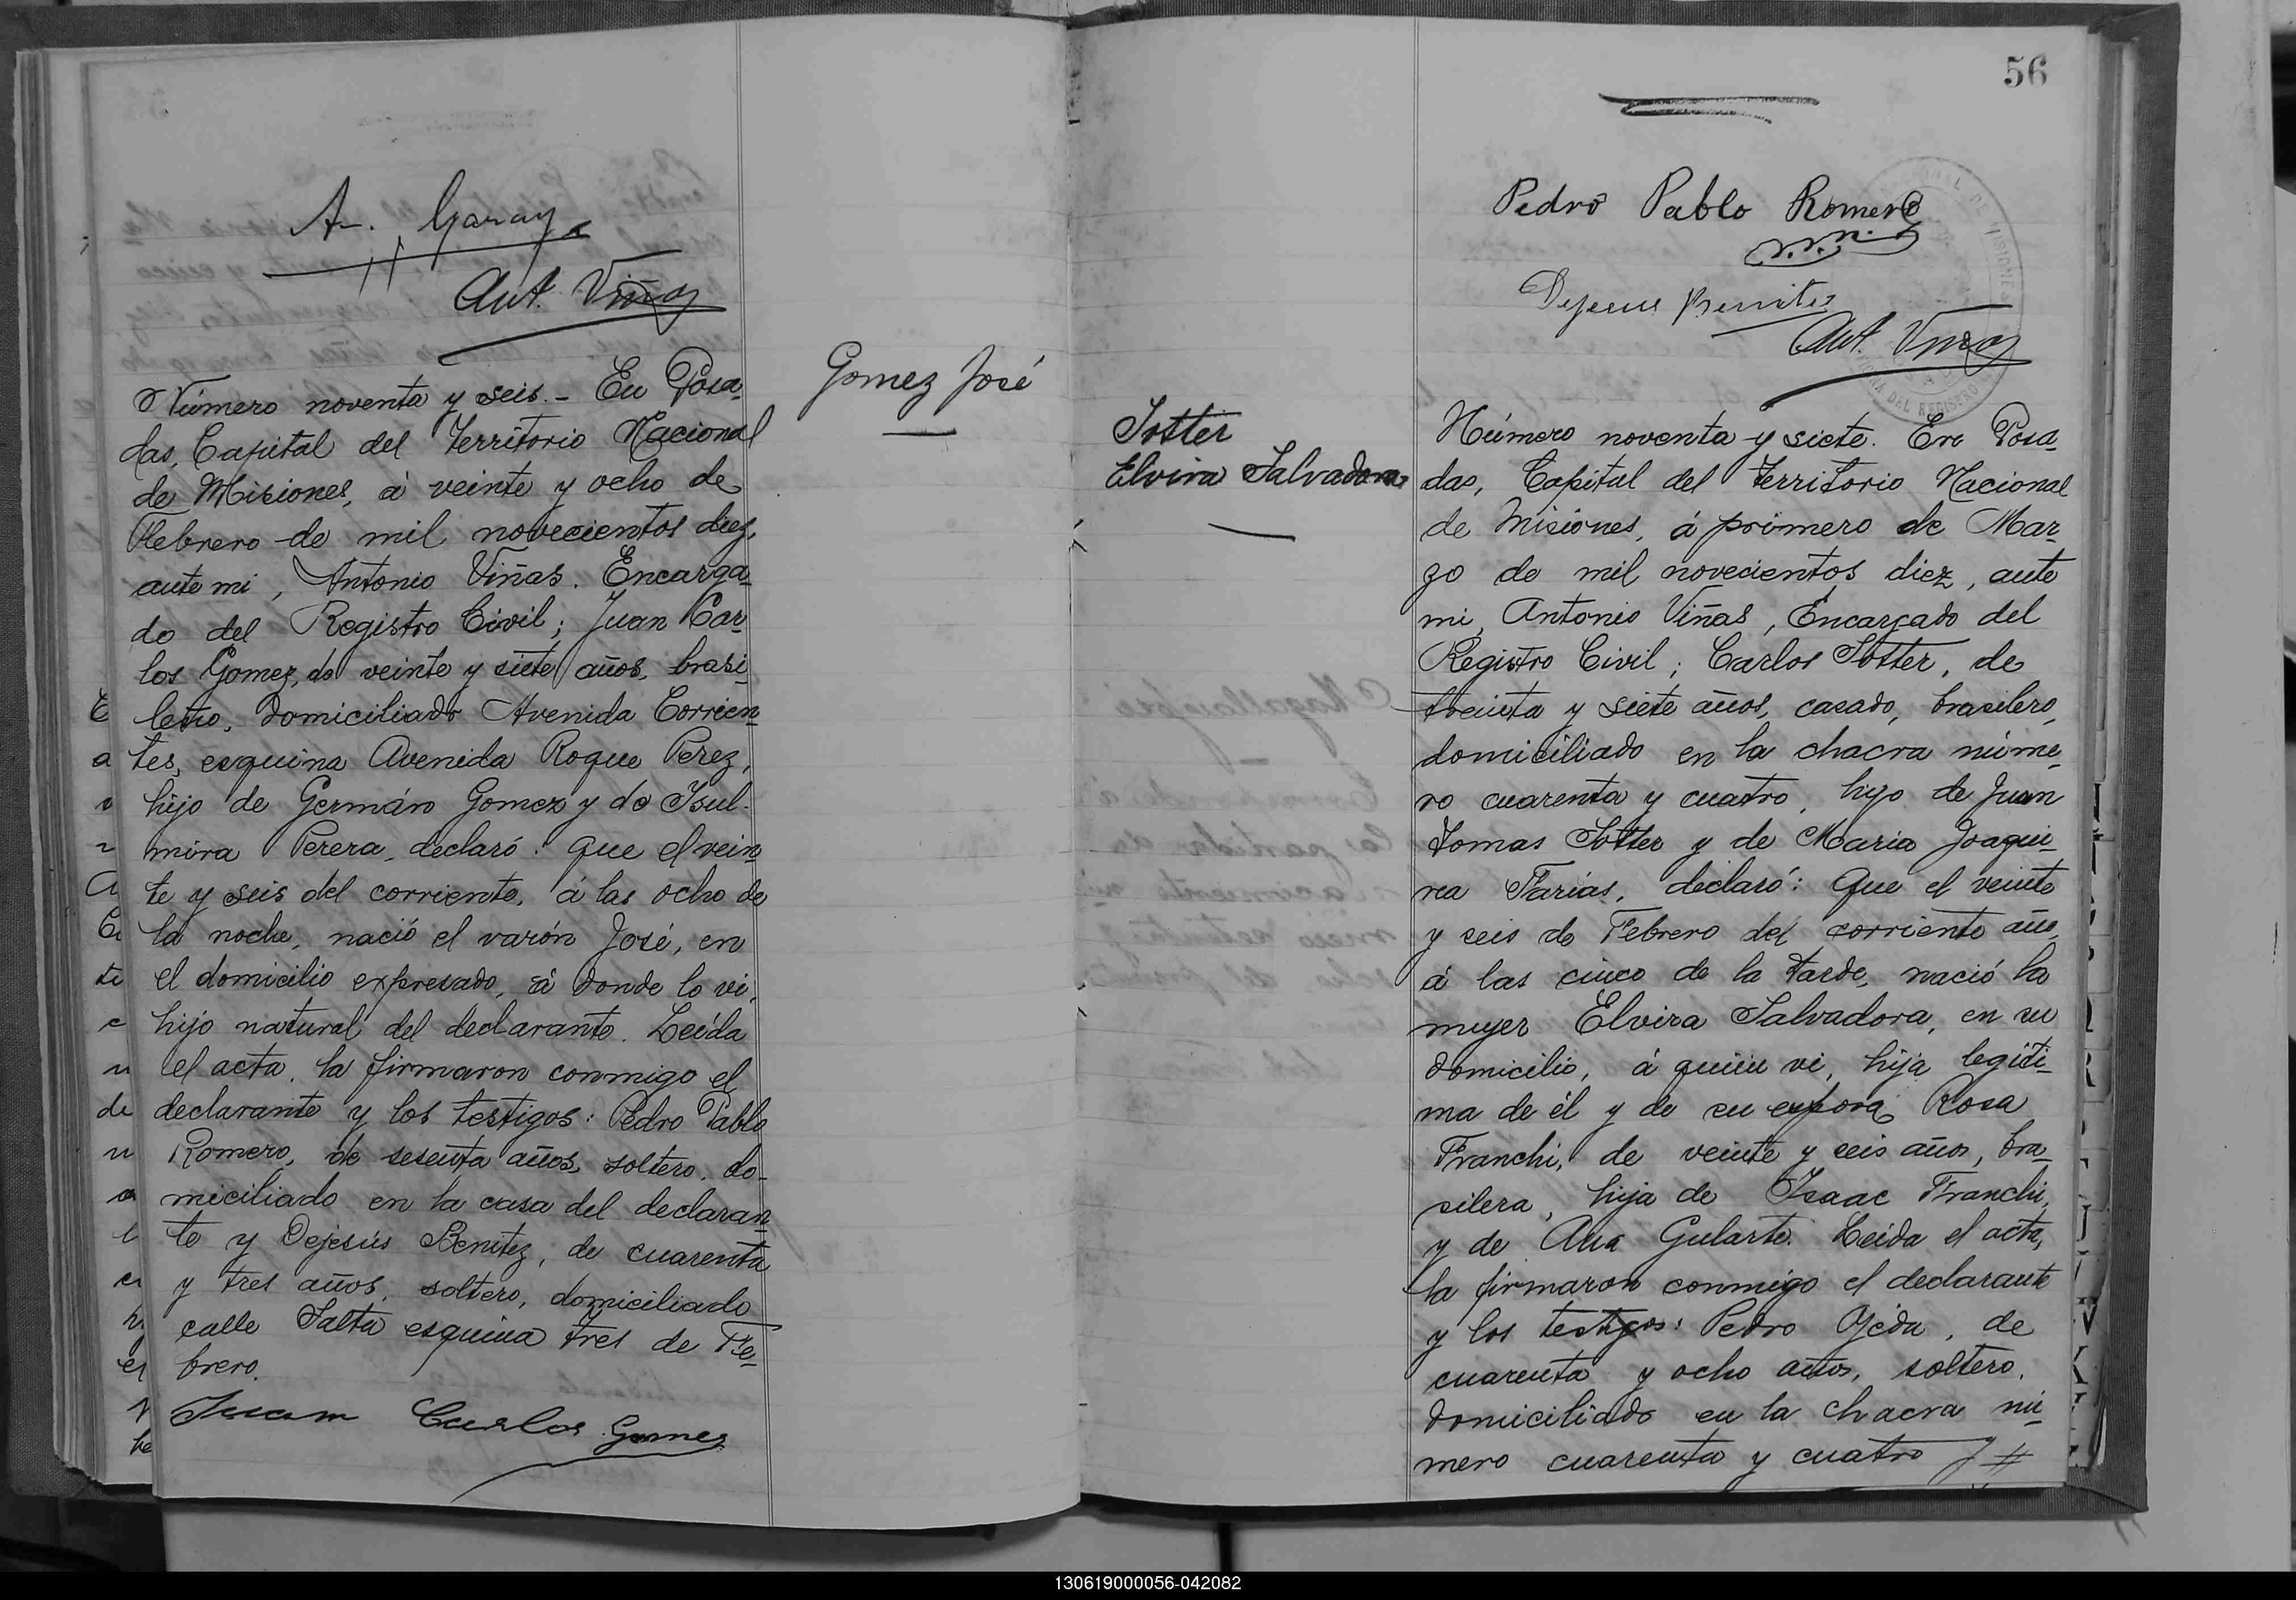 A. Garay
Ant. Viñas
Número noventa y seis. - En Posa-
das, Capital del Territorio Nacional
de Misiones, á veinte y ocho de
Febrero de mil novecientos diez,
ante mi, Antonio Viñas. Encarga-
do del Registro Civil; Juan Car-
los Gomez, de veinte y siete años, brasi-
leño, domiciliado Avenida Corrien-
tes, esquina Avenida Roque Perez,
hijo de Germán Gomez y de Isul-
mira Perera, declaró: Que el vein-
te y seis del corriente, á las ocho de
la noche, nació el varón José, en
el domicilio expresado, á donde lo vi,
hijo natural del declarante. Leída
el acta, la firmaron conmigo el
declarante y los testigos: Pedro Pablo
Romero, de sesenta años, soltero, do-
miciliado en la casa del declaran-
te y Dejesús Benitez, de cuarenta
y tres años, soltero, domiciliado
calle Salta esquina tres de Fe-
brero.
Juan Carlos Gomez
Gomez José
56
Pedro Pablo Romero
Dejesus Benites
Ant. Viñas
Sotter
Elvira Salvadora
Número noventa y siete. En Posa-
das, Capital del Territorio Nacional
de Misiones, á primero de Mar-
zo de mil novecientos diez, ante
mi, Antonio Viñas, Encargado del
Registro Civil; Carlos Sotter, de
treinta y siete años, casado, brasilero,
domiciliado en la chacra núme-
ro cuarenta y cuatro, hijo de Juan
Tomas Sotter y de Maria Joaqui-
na Farías, declaró: Que el veinte
y seis de Febrero del corriente año
á las cinco de la tarde, nació la
mujer Elvira Salvadora, en su
domicilio, á quien vi, hija legíti-
ma de él y de su esposa Rosa
Franchi, de veinte y seis años, bra-
silera, hija de Isaac Franchi,
y de Ana Gularte. Leída el acta,
la firmaron conmigo el declarante
y los testigos: Pedro Ojeda, de
cuarenta y ocho años, soltero,
domiciliado en la chacra nú-
mero cuarenta y cuatro y
130619000056-042082